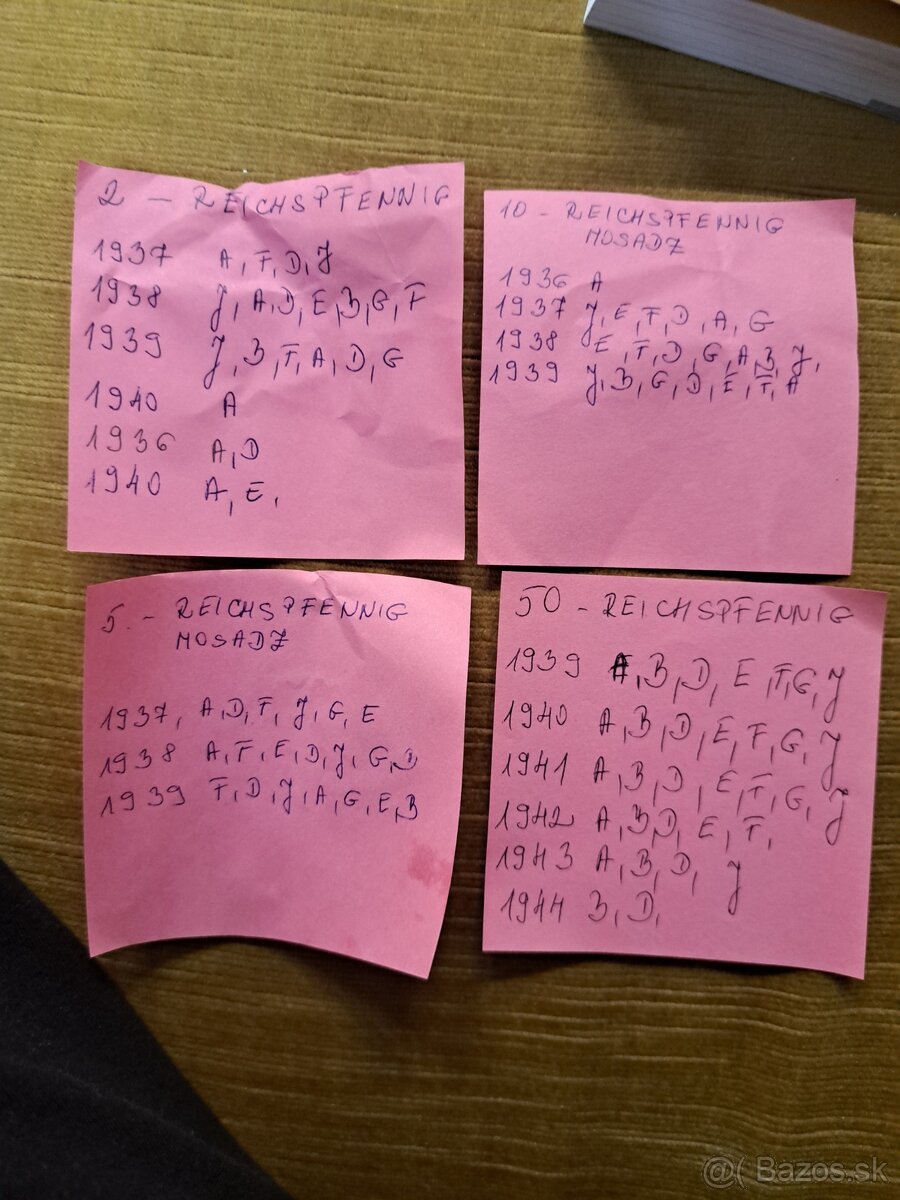 2 - REICHSPFENNIG
1937 A, F, D, J
1938 J, A, D, E, B, G, F
1939 J, B, F, A, D, G
1940 A
1936 A, D
1940 A, E,
10 - REICHSPFENNIG
MOSADZ
1936 A
1937 J, E, F, D, A, G
1938 E, F, D, G, A, B, J,
1939 J, B, G, D, E, F, A
5. - REICHSPFENNIG
MOSADZ
1937, A, D, F, J, G, E
1938 A, F, E, D, J, G,
1939 F, D, J, A, G, E, B
50 - REICHSPFENNIG
1939 A, B, D, E, F, G, J
1940 A, B, D, E, F, G, J
1941 A, B, D, E, F, G, J
1942 A, B, D, E, F,
1943 A, B, D, J
1944 B, D,
@( Bazos.sk